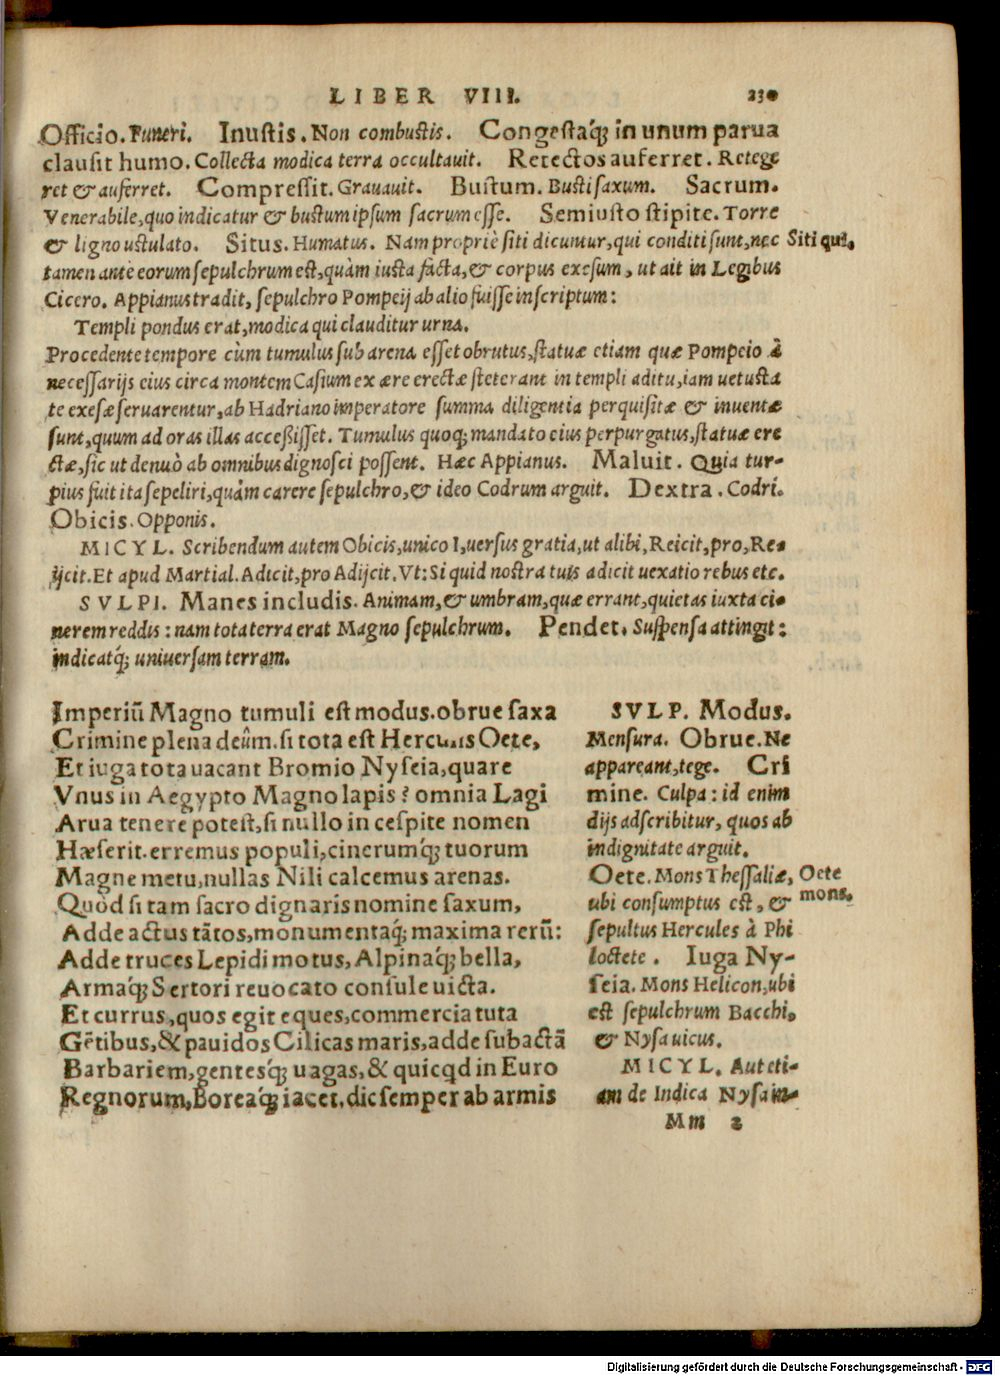 LIBER VIII. 230
Officio. Funeri. Inustis. Non combustis. Congestaq́; in unum parua
clausit humo. Collecta modica terra occultauit. Retectos auferret. Retege
ret & auferret. Compressit. Grauauit. Bustum. Busti saxum. Sacrum.
Venerabile, quo indicatur & bustum ipsum sacrum esse. Semiusto stipite. Torre
& ligno ustulato. Situs. Humatus. Nam propriè siti dicuntur, qui conditi sunt, nec
Siti qui.
tamen ante eorum sepulchrum est, quàm iusta facta, & corpus exesum, ut ait in Legibus
Cicero. Appianus tradit, sepulchro Pompeij ab alio fuisse inscriptum:
Templi pondus erat, modica qui clauditur urna.
Procedente tempore cùm tumulus sub arena esset obrutus, statuæ etiam quæ Pompeio à
necessarijs eius circa montem Casium ex ære erectæ steterant in templi aditu, iam uetusta
te exesæ seruarentur, ab Hadriano imperatore summa diligentia perquisitæ & inuentæ
sunt, quum ad oras illas accessisset. Tumulus quoq; mandato eius perpurgatus, statuæ ere
ctæ, sic ut denuò ab omnibus dignosci possent. Hæc Appianus. Maluit. Quia tur-
pius fuit ita sepeliri, quàm carere sepulchro, & ideo Codrum arguit. Dextra. Codri.
Obicis. Opponis.
MICYL. Scribendum autem Obicis, unico I, uersus gratia, ut alibi, Reicit, pro, Re-
ijcit. Et apud Martial. Adicit, pro Adijcit. Vt: Si quid nostra tuis adicit uexatio rebus etc.
SVLPI. Manes includis. Animam, & umbram, quæ errant, quietas iuxta ci-
nerem reddis: nam tota terra erat Magno sepulchrum. Pendet. Suspensa attingit:
indicatq́; uniuersam terram.
Imperiū Magno tumuli est modus. obrue saxa
Crimine plena deûm. si tota est Herculis Oete,
Et iuga tota uacant Bromio Nyseia, quare
Vnus in Aegypto Magno lapis? omnia Lagi
Arua tenere potest, si nullo in cespite nomen
Hæserit. erremus populi, cinerumq́; tuorum
Magne metu, nullas Nili calcemus arenas.
Quòd si tam sacro dignaris nomine saxum,
Adde actus tātos, monumentaq́; maxima rerū:
Adde truces Lepidi motus, Alpinaq́; bella,
Armaq́; Sertori reuocato consule uicta.
Et currus, quos egit eques, commercia tuta
Gētibus, & pauidos Cilicas maris, adde subactā
Barbariem, gentesq́; uagas, & quicqd in Euro
Regnorum, Boreaq́; iacet. dic semper ab armis
SVLP. Modus.
Mensura. Obrue. Ne
appareant, tege. Cri
mine. Culpa: id enim
dijs adscribitur, quos ab
indignitate arguit.
Oete. Mons Thessaliæ,
ubi consumptus est, &
sepultus Hercules à Phi
loctete. Iuga Ny-
seia. Mons Helicon, ubi
est sepulchrum Bacchi,
& Nysa uicus.
MICYL. Aut eti-
am de Indica Nysa in-
Oete
mons.
Mm 2
Digitalisierung gefördert durch die Deutsche Forschungsgemeinschaft - DFG